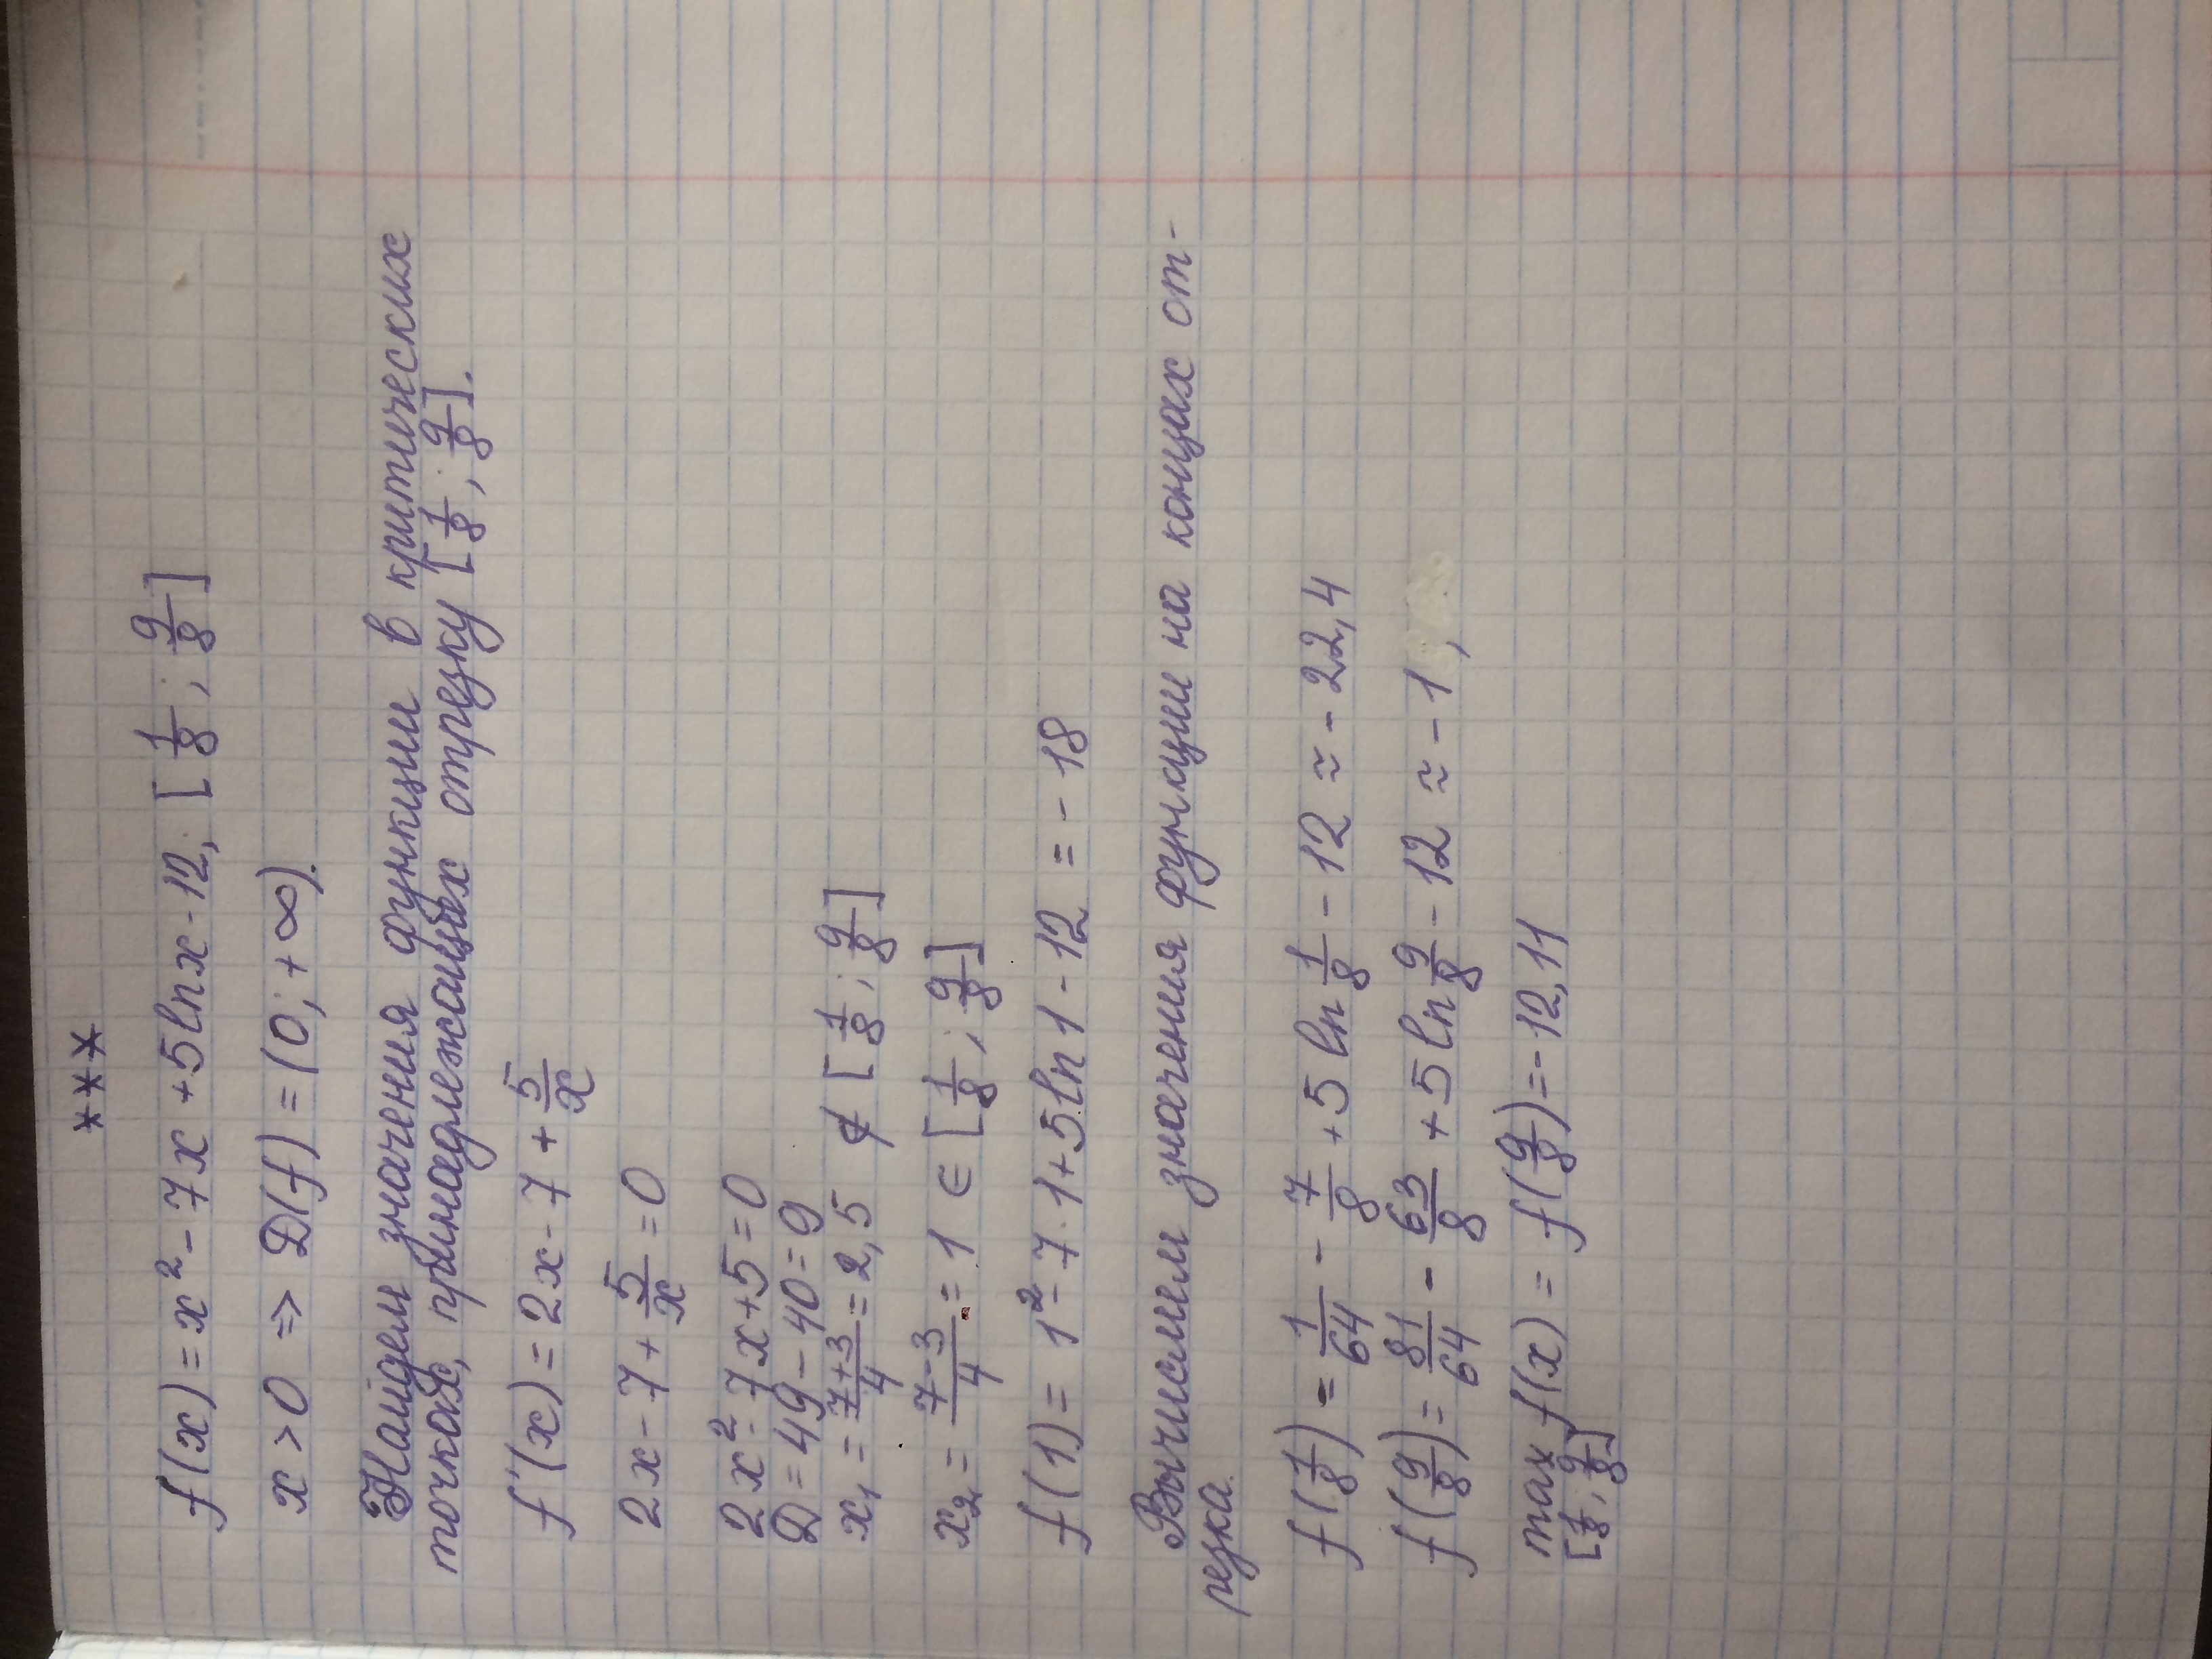 ***
f(x) = x² - 7x + 5lnx - 12, [1/8; 9/8]
x > 0 => D(f) = (0; +∞).
Найдем значения функции в критических
точках, принадлежащих отрезку [1/8; 9/8].
f'(x) = 2x - 7 + 5/x
2x - 7 + 5/x = 0
2x² - 7x + 5 = 0
D = 49 - 40 = 9
x₁ = (7+3)/4 = 2,5 ∉ [1/8; 9/8]
x₂ = (7-3)/4 = 1 ∈ [1/8; 9/8]
f(1) = 1² - 7·1 + 5ln1 - 12 = -18
Вычислим значения функции на концах от-
резка.
f(1/8) = 1/64 - 7/8 + 5ln 1/8 - 12 ≈ -22,4
f(9/8) = 81/64 - 63/8 + 5ln 9/8 - 12 ≈ -1 ,
max f(x) = f(9/8) = -12,11
[1/8; 9/8]